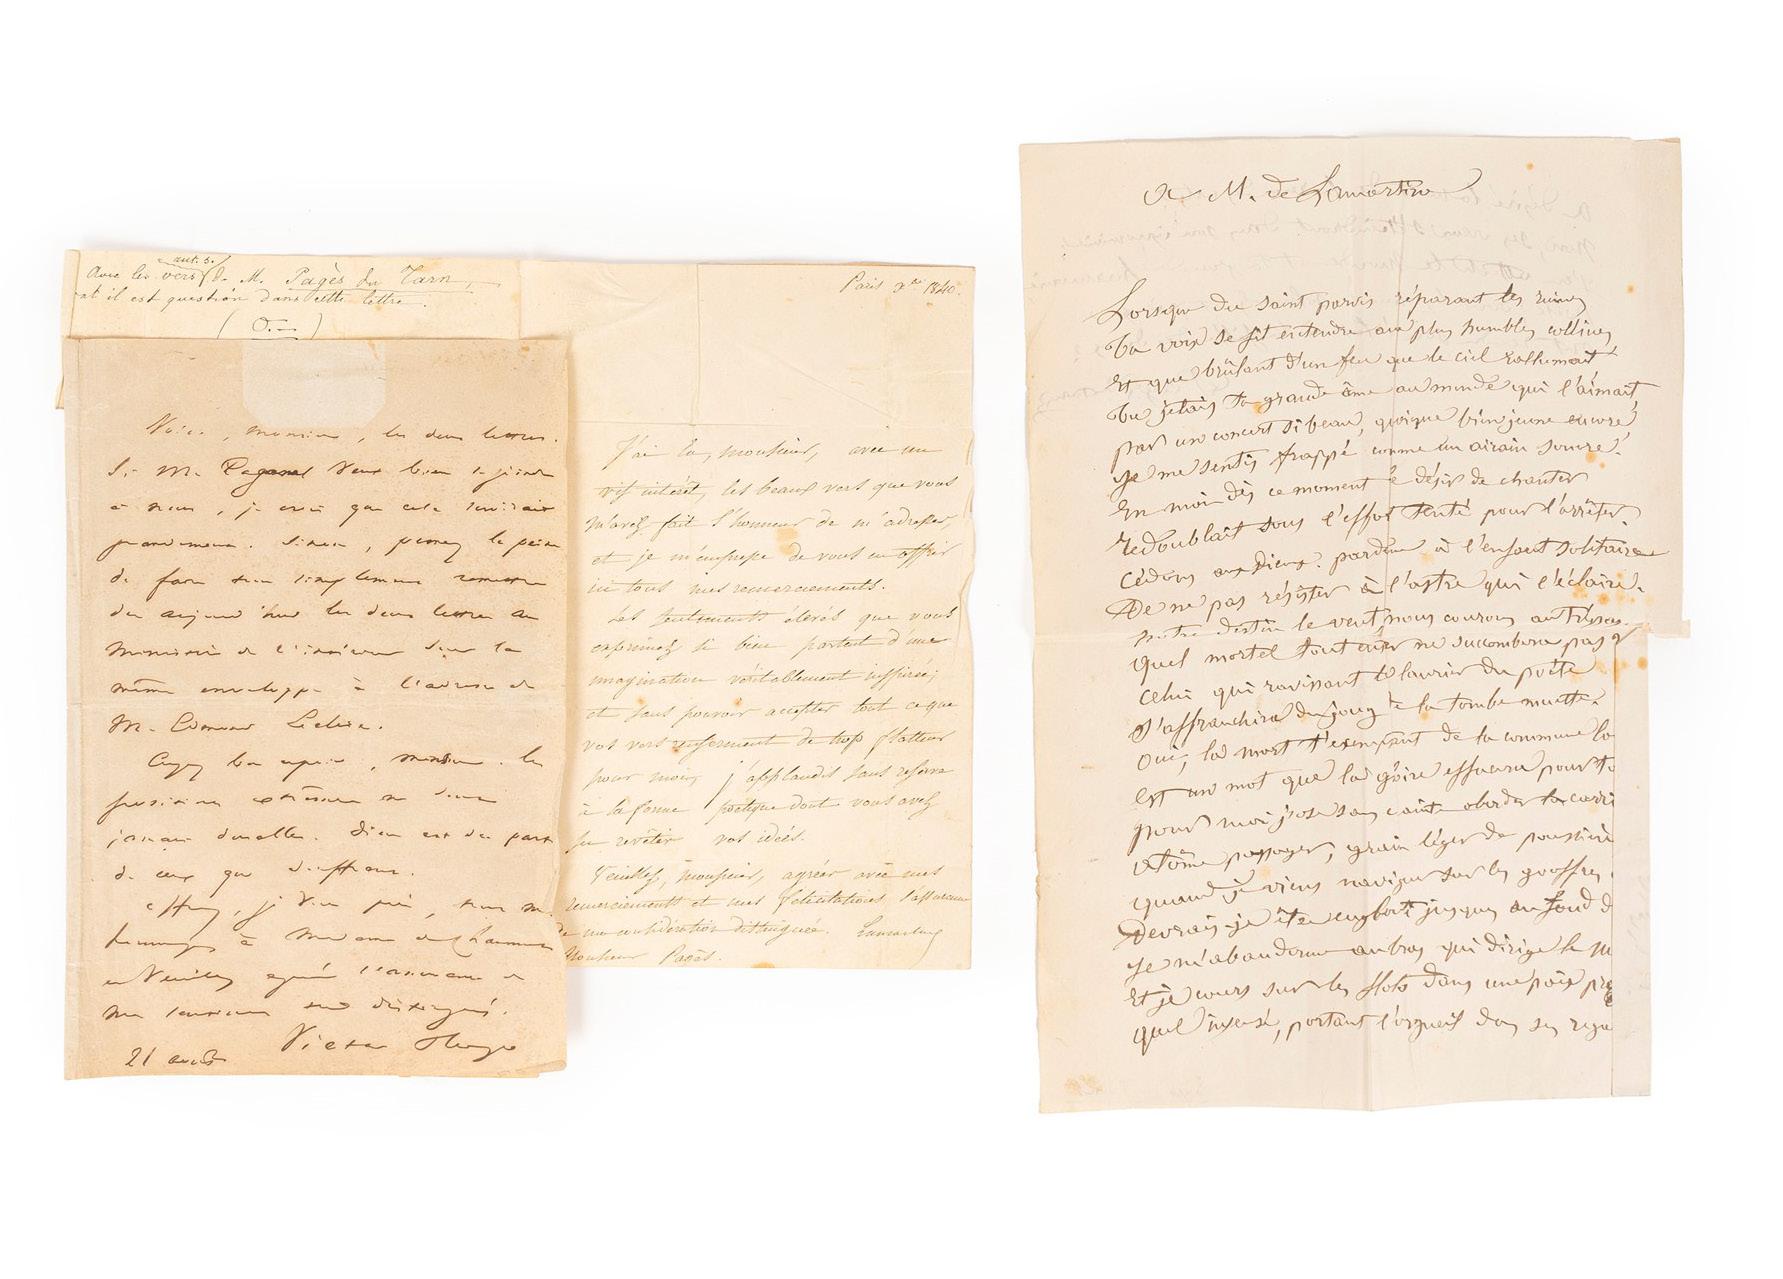 aut. s.
Avec les vers de M. Pagès du Tarn,
dont il est question dans cette lettre.
Paris xbre 1840.
Voici, monsieur, les deux lettres.
Si M. Paganel veut bien se joindre
à nous, je crois que cela servirait
grandement. Sinon, prenez la peine
de faire tout simplement remettre
dès aujourd'hui les deux lettres au
Ministère de l'intérieur sous la
même enveloppe à l'adresse de
M. Edmond Leclerc.
Ayez bon espoir, monsieur. Les
positions extrêmes ne sont
jamais durables. Dieu est du parti
de ceux qui souffrent.
Offrez, je vous prie, tous mes
hommages à Madame de
et Veuillez agréer l'assurance de
mes sentiments distingués.
Victor Hugo
21 août
J'ai lu, monsieur, avec un
vif intérêt, les beaux vers que vous
m'avez fait l'honneur de m'adresser,
et je m'empresse de vous en offrir
ici tous mes remerciements.
Les sentiments élevés que vous
exprimez si bien partent d'une
imagination véritablement inspirée;
et sans pouvoir accepter tout ce que
vos vers renferment de trop flatteur
pour moi, j'applaudis sans réserve
à la forme poétique dont vous avez
su revêtir vos idées.
Veuillez, monsieur, agréer avec mes
remerciements et mes félicitations l'assurance
de ma considération distinguée. Lamartine
Monsieur Pagès.
A M. de Lamartine
Lorsque du saint parvis réparant les ruines
Ta voix se fit entendre aux plus humbles collines
Et que brûlant d'un feu que le ciel rallumait
Tu jetais ta grande âme au monde qui l'aimait,
par un concert si beau, quoique bien jeune encore
Je me sentis frappé comme un airain sonore.
En moi dès ce moment le désir de chanter
redoublait sous l'effort tenté pour l'arrêter.
Cédons aux Dieux: pardonne à l'enfant solitaire
De ne pas résister à l'astre qui l'éclaire.
Notre destin le veut, nous courons au trépas.
Quel mortel tout entier ne succombera pas?
Celui qui ravissant le laurier du poète
S'affranchira du joug de la tombe muette.
Oui, la mort t'exemptant de la commune lo
Est un mot que la gloire effacera pour to
pour moi j'ose sans crainte aborder la carri
Atôme passager, grain léger de poussiè
quand je viens naviguer sur les gouffres
Devrais-je être englouti jusques au fond d
Je m'abandonne au bras qui dirige le m
Et je cours sur les flots dans une paix pr
Quel insensé, portant l'orgueil dans ses rega